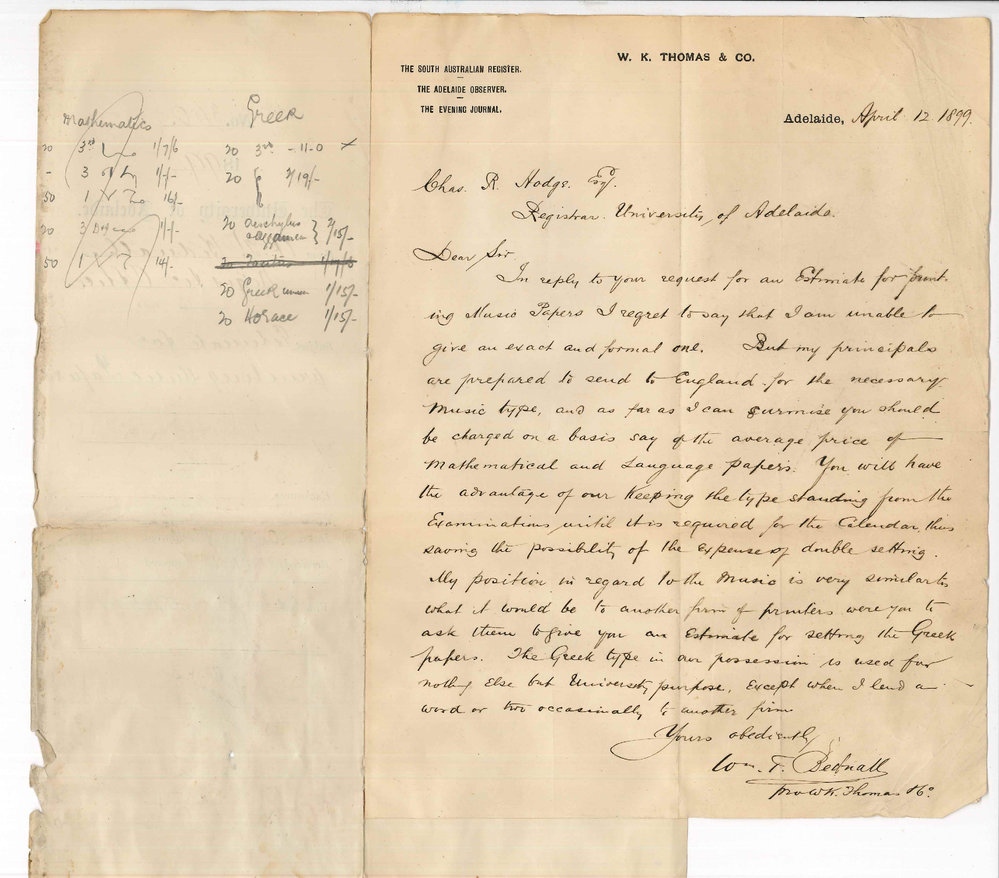 W. K. THOMAS & CO.
THE SOUTH AUSTRALIAN REGISTER.
THE ADELAIDE OBSERVER.
THE EVENING JOURNAL.
Adelaide, April 12 1899.
Chas. R. Hodge. Esqr.
Registrar University of Adelaide.
Dear Sir,
In reply to your request for an Estimate for print-
ing Music Papers I regret to say that I am unable to
give an exact and formal one. But my principals
are prepared to send to England for the necessary
Music type, and as far as I can surmise you should
be charged on a basis say of the average price of
Mathematical and Language papers. You will have
the advantage of our keeping the type standing from the
Examinations until it is required for the Calendar, thus
saving the possibility of the expense of double setting.
My position in regard to the Music is very similar to
what it would be to another firm of printers were you to
ask them to give you an Estimate for setting the Greek
papers. The Greek type in our possession is used for
nothing else but University purpose, except when I lend a
word or two occasionally to another firm
Yours obediently
Wm. F. Bednall
pro W.K. Thomas & Co.
Mathematics
20 3rd 1/7/6
3 1/-/-
50 1 16/-
20 3 1/-/-
50 1 14/-
Greek
20 3rd - 11-0 x
20 2/19/-
20 Aeschylus
Agamem } 2/15/-
20 Tacitus
20 Greek 1/15/-
20 Horace 1/15/-